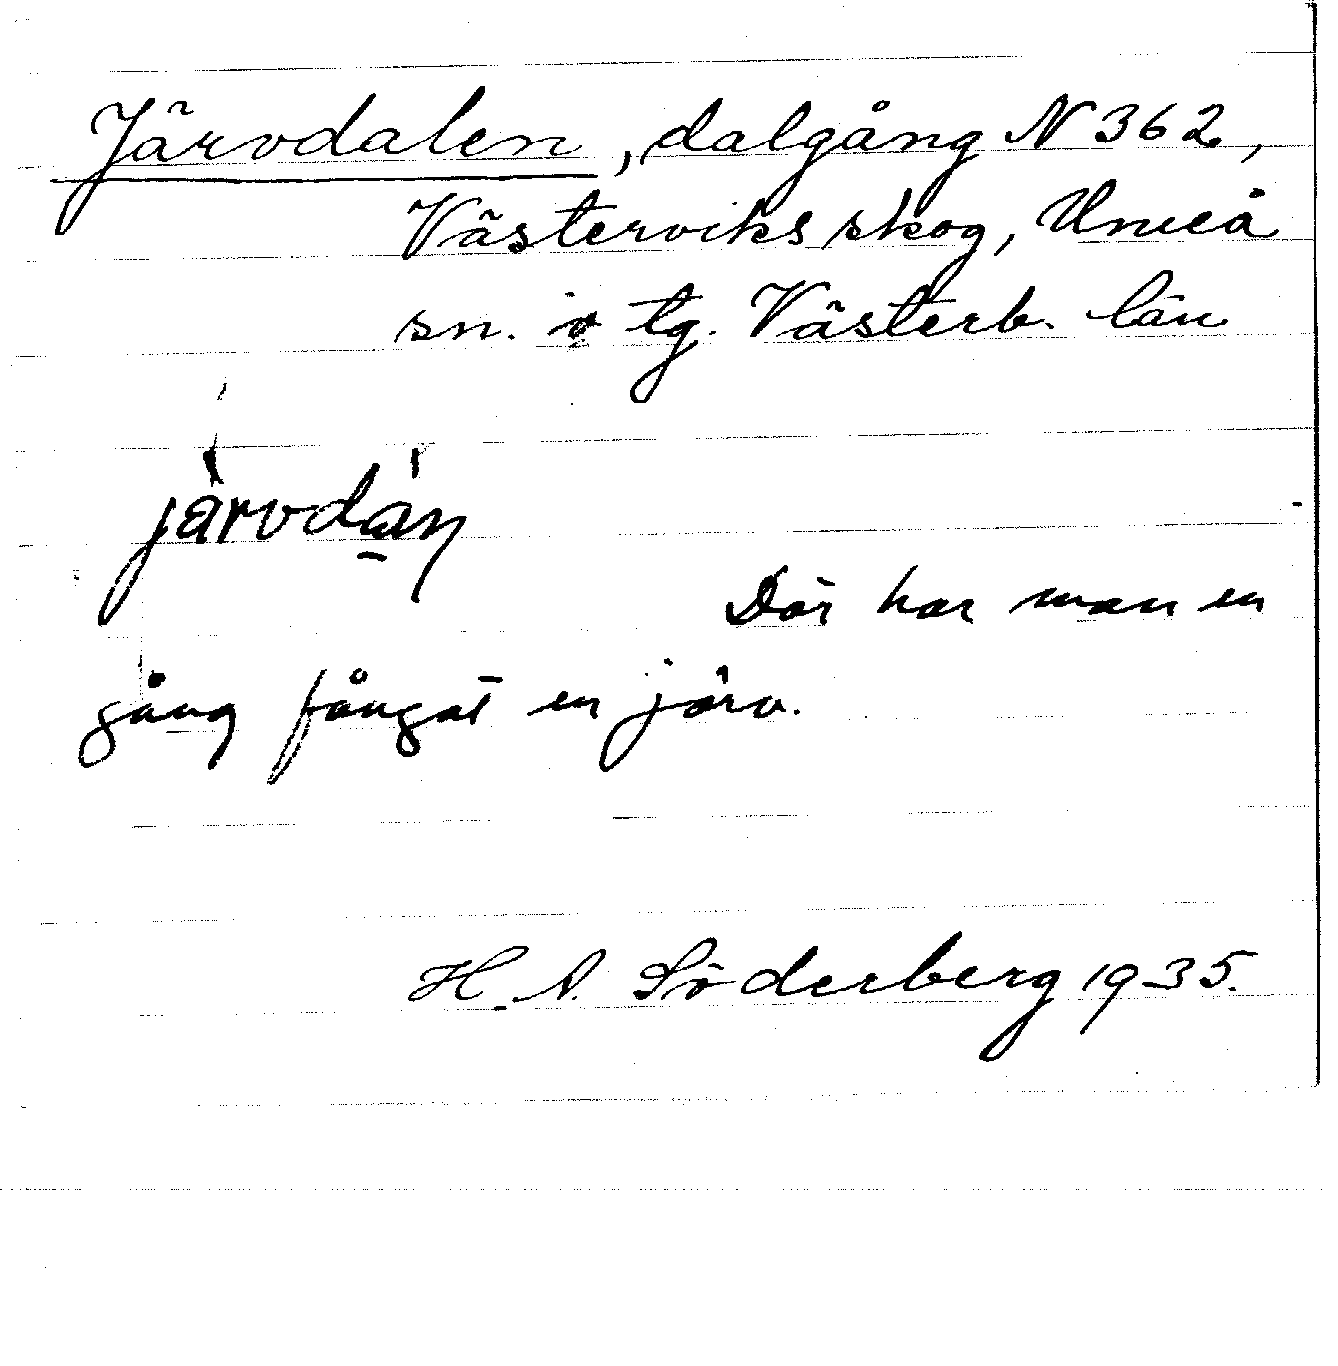 Järvdalen, dalgång N 362,
Västerviks skog, Umeå
sn. o tg. Västerb. län
järvdàn
Där har man en
gång fångat en järv.
H. A. Söderberg 1935.